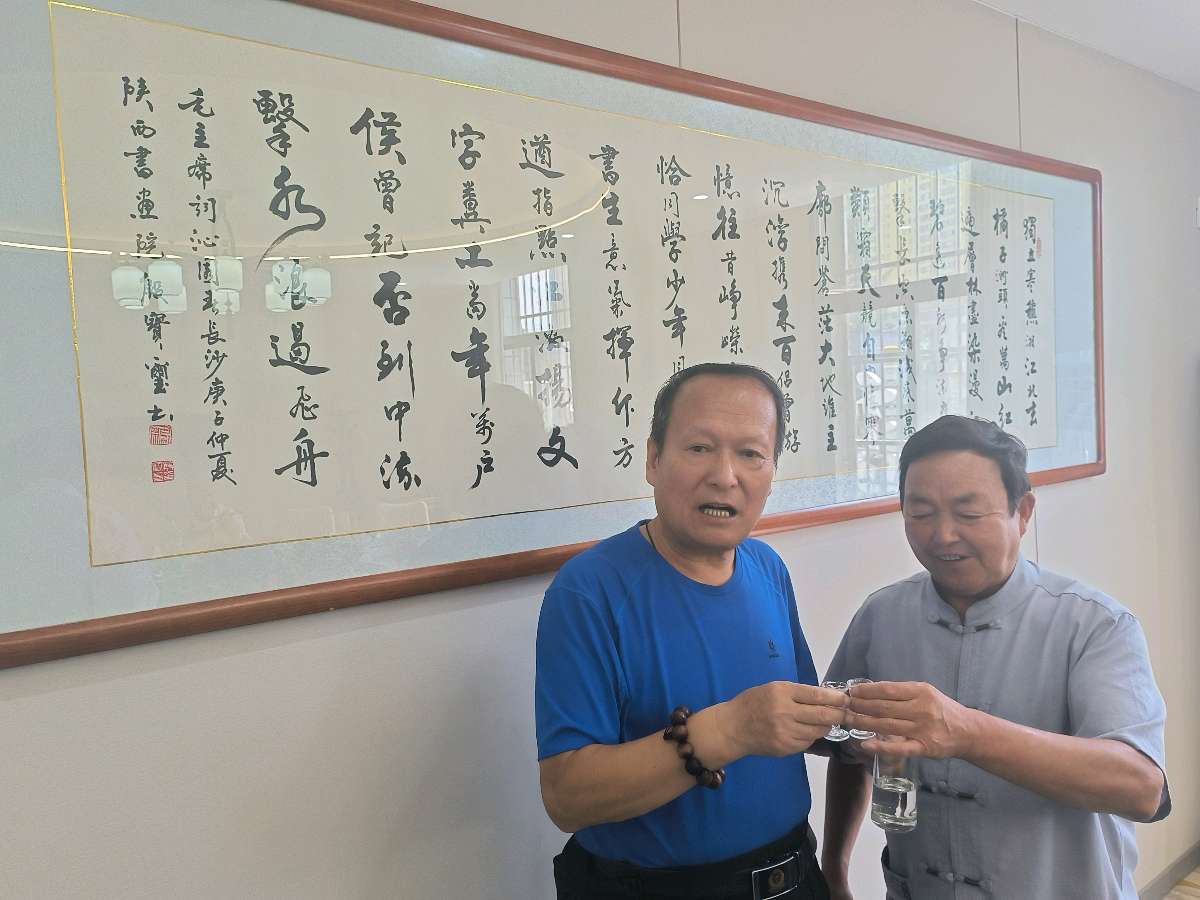 獨立寒橋湘江北去
橘子洲頭看萬山紅
遍層林盡染漫江
碧透百舸爭流鷹
擊長空魚翔淺底萬
類霜天競自由悵寥
廓問蒼茫大地誰主
沉浮攜來百侶曾游
憶往昔崢嶸
恰同學少年風
書生意氣揮斥方
遒指點江山激揚文
字糞土當年萬戶
侯曾記否到中流
擊水浪遏飛舟
毛主席詞沁園春長沙庚子仲夏
陝西書畫院殷寶璽書